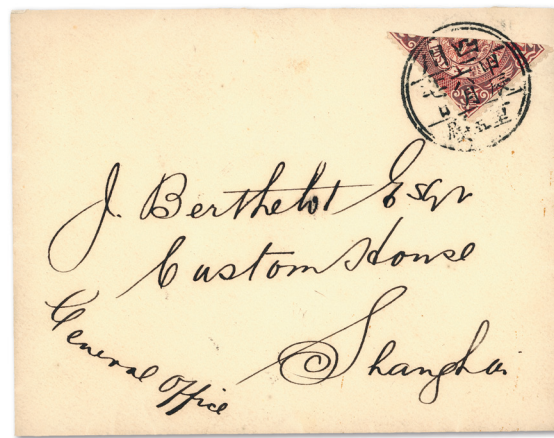 J. Berthelot Esqr
Custom House
Shanghai
General Office